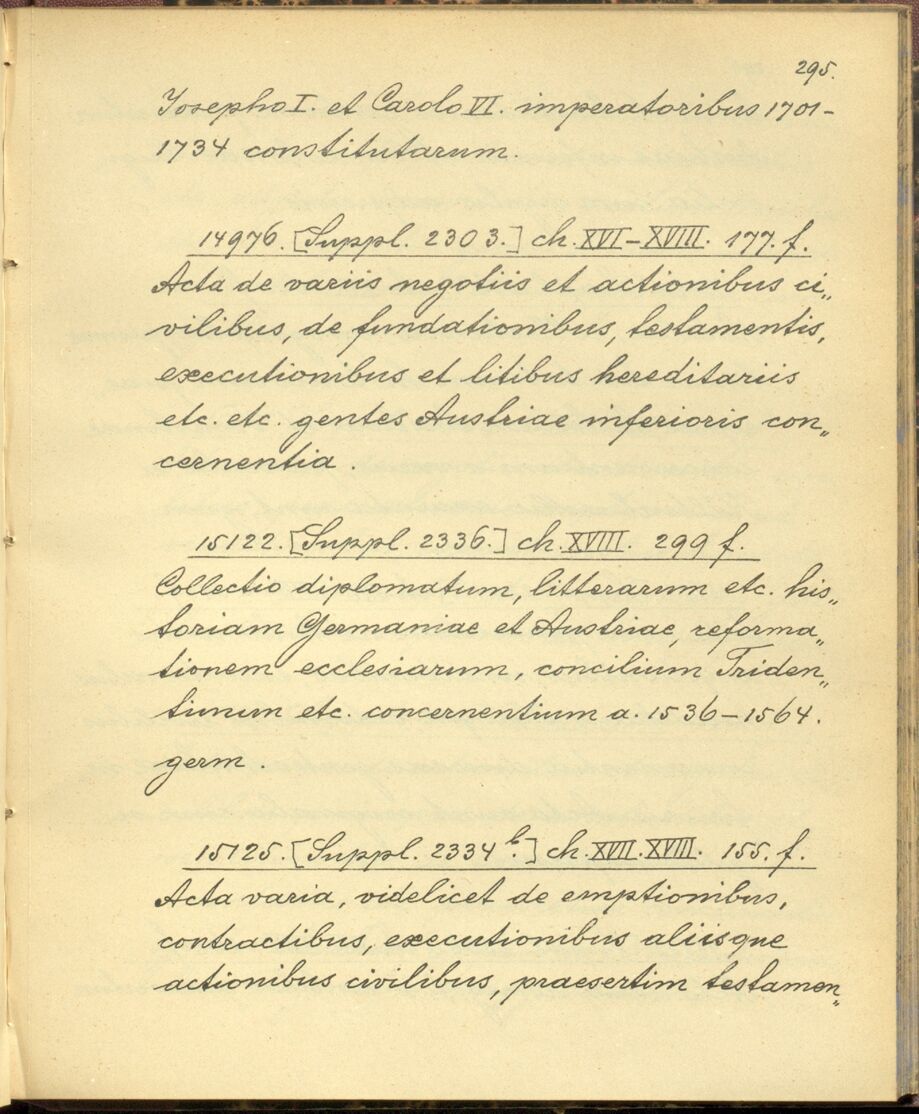 295.
Josepho I. et Carolo VI. imperatoribus 1701-
1734 constitutarum.
14976. [Suppl. 2303.] ch. XVI-XVIII. 177. f.
Acta de variis negotiis et actionibus ci„
vilibus, de fundationibus, testamentis,
executionibus et litibus hereditariis
etc. etc. gentes Austriae inferioris con„
cernentia.
15122. [Suppl. 2336.] ch. XVIII. 299 f.
Collectio diplomatum, litterarum etc. his„
toriam Germaniae et Austriae, reforma„
tionem ecclesiarum, concilium Triden„
tinum etc. concernentium a. 1536-1564.
germ.
15125. [Suppl. 2334 b.] ch. XVII. XVIII. 155. f.
Acta varia, videlicet de emptionibus,
contractibus, executionibus aliisque
actionibus civilibus, praesertim testamen„